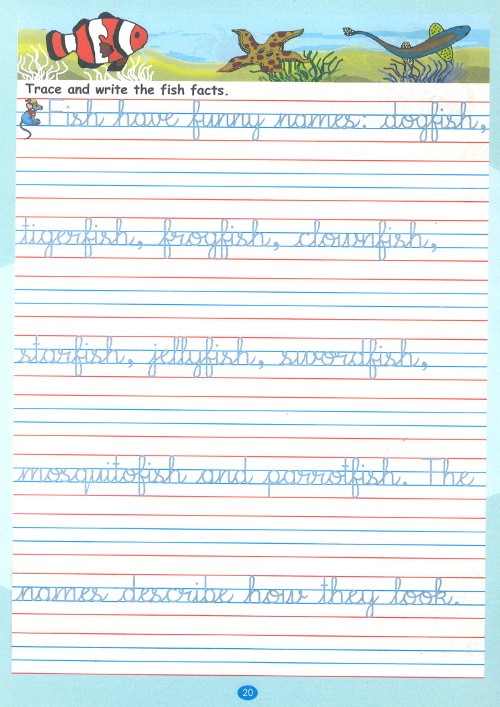 Trace and write the fish facts.
Fish have funny names: dogfish,
tigerfish, frogfish, clownfish,
starfish, jellyfish, swordfish,
mosquitofish and parrotfish. The
names describe how they look.
20